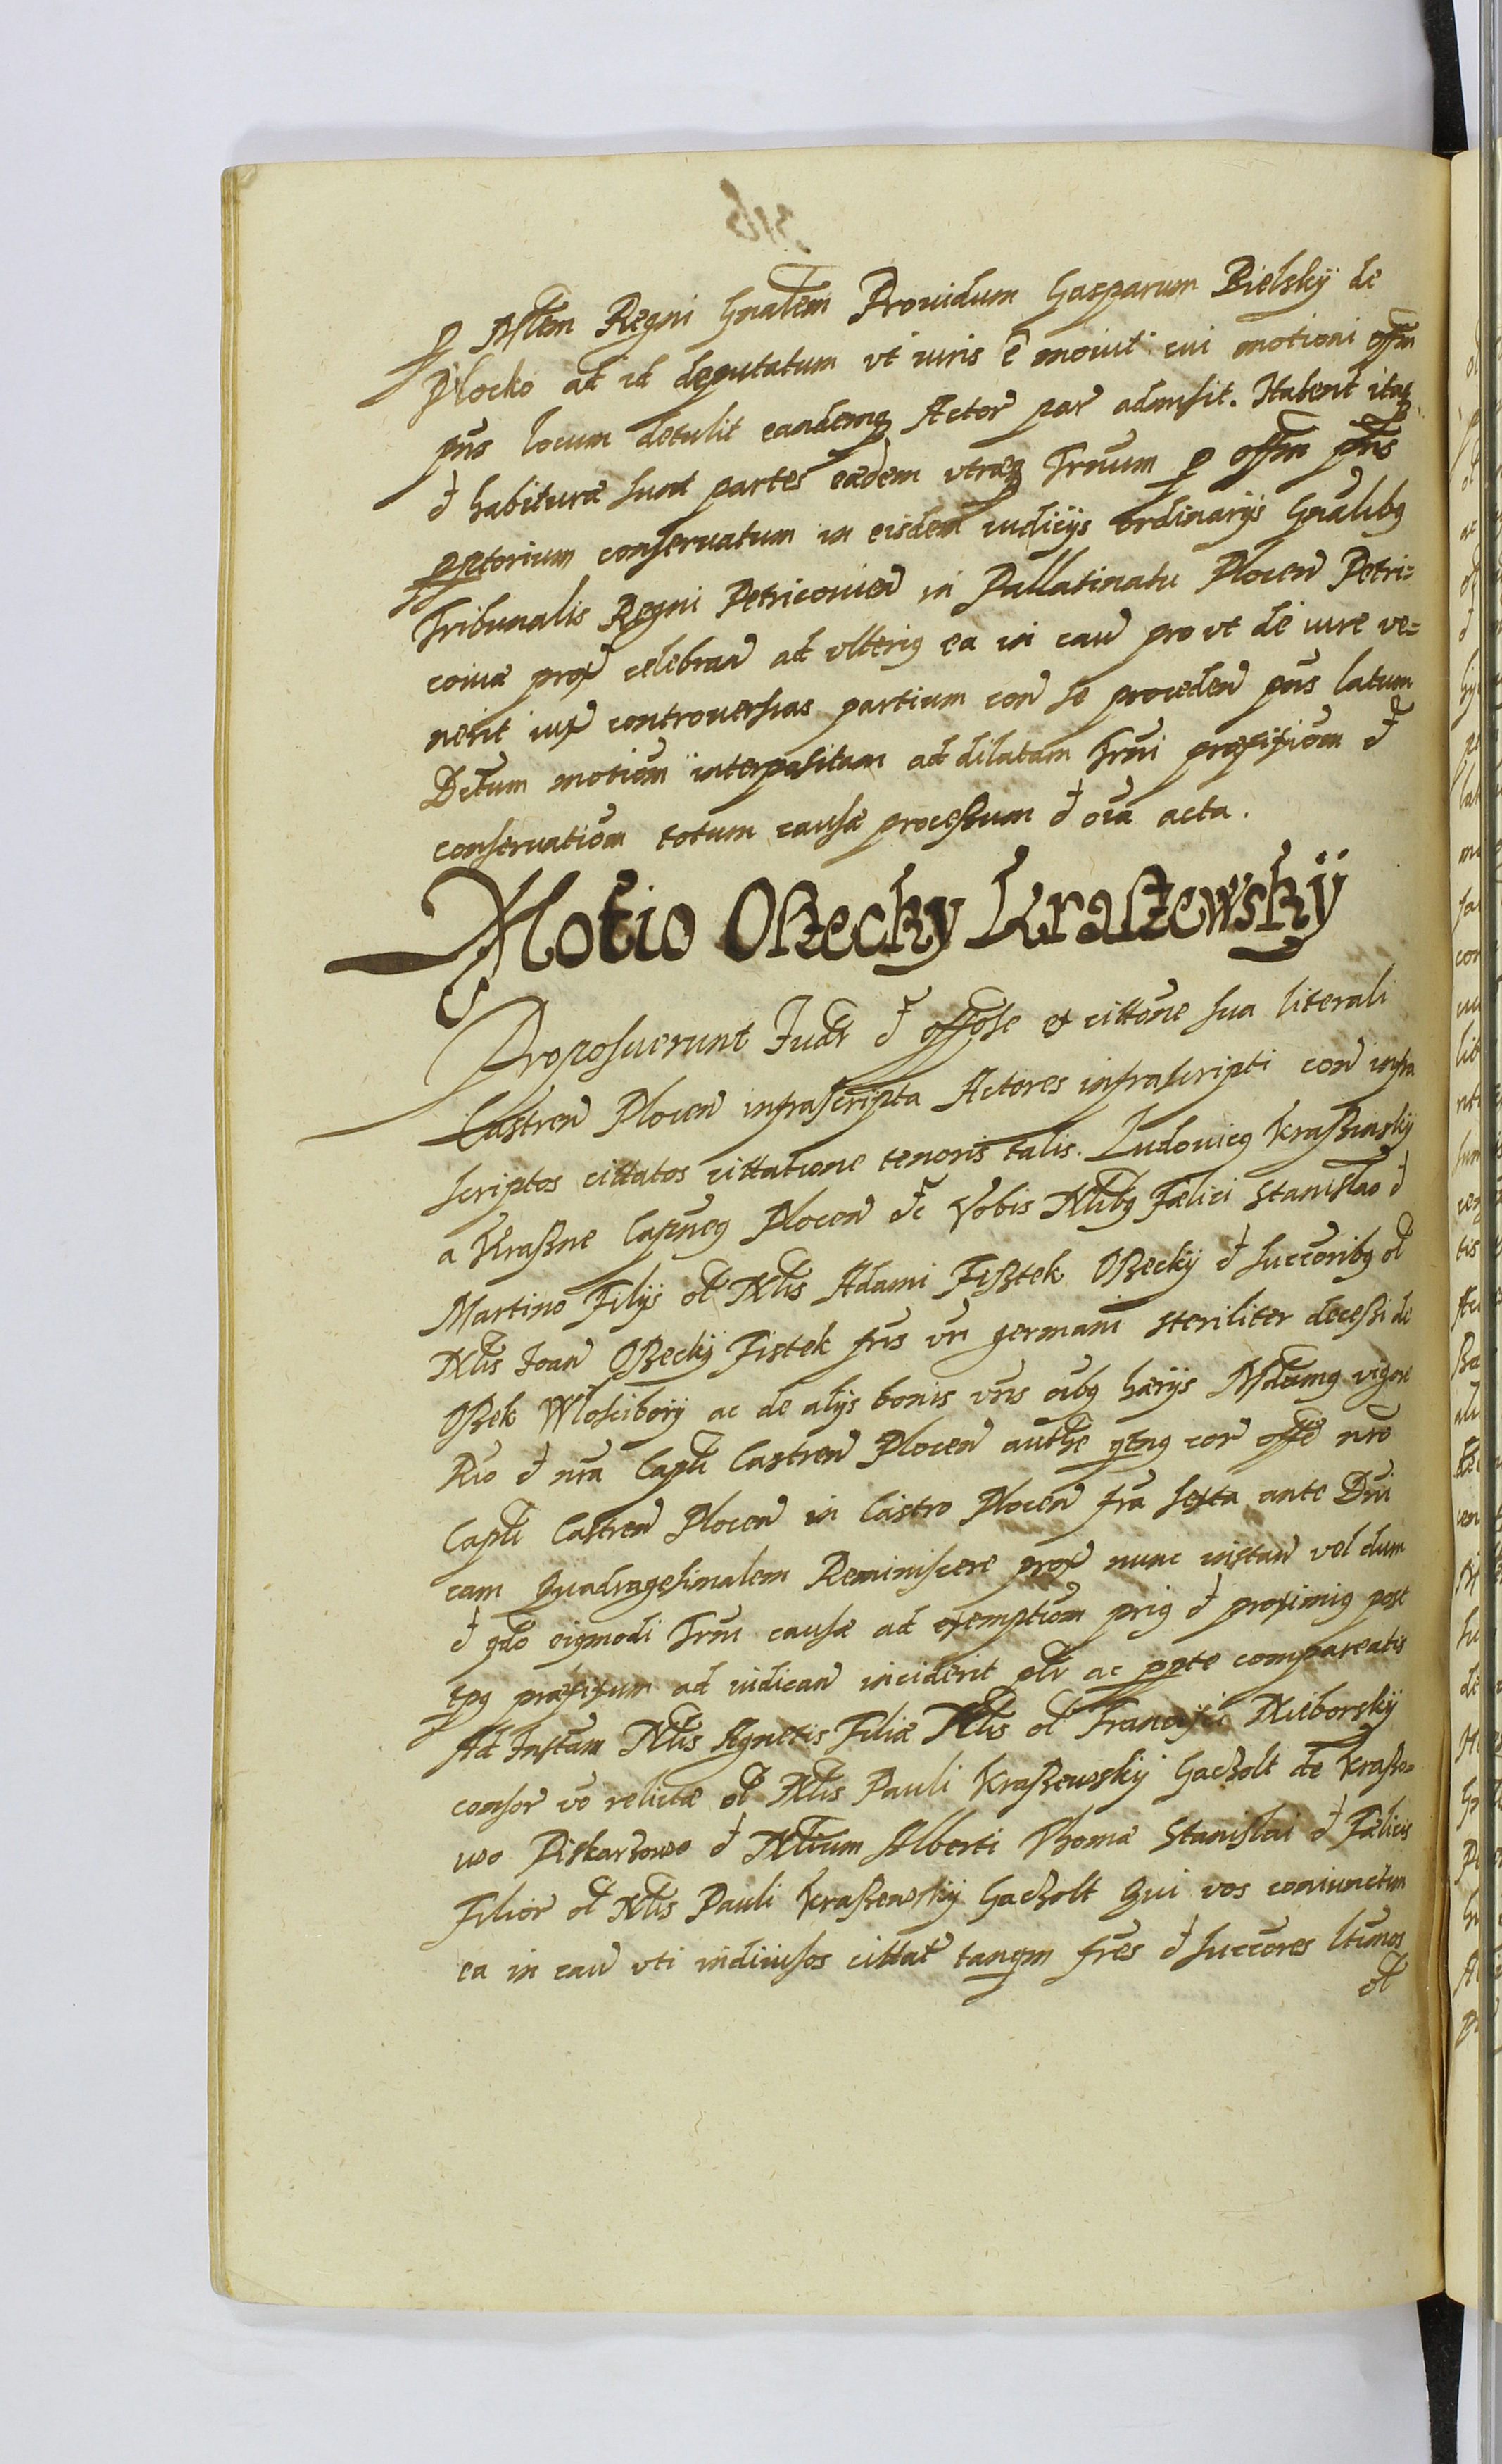 ꝑ Mſtem Regni Gnalem Prouidum Gasparum Bielsky de
Plocko ad id deputatum vt iuris ē mouit cui motioni offm
pns locum detulit eandemq Actor par admisit. Habent itaq
et habituræ sunt partes eædem vtræq Trnum ꝑ offm pns
ꝑptorium conseruatum in eisdem iudicijs ordinarijs Gnalibq
Tribunalis Regni Petricouien in Pallatinatu Plocen Petri=
couiæ prox celebran ad vlteriq ea in cau pro vt de iure ve=
nerit iux controuersias partium con se proceden pns latum
Dctum motiom interpositam ad dilatam Trni præfixiom et
conseruatiom totum causæ processum et oia acta.
Motio Oßecky Kraßewsky
Proposuerunt Judt et offose et cittone sua literali
Castren Plocen infrascripta Actores infrascripti con infra
scriptos cittatos cittatione tenoris talis. Ludouicq Kraßinsky
a Kraßne Capneq Plocen etc Vobis Nlibq Fælici Stanislao et
Martino Filijs ol Nlis Adami Fißtek Oßecky et succoribq ol
Nlis Joan Oßecky Fistek fris vri germani steriliter decessi de
Oßek Wlosciborÿ ac de alijs bonis vris oibq hærijs Mdamq vigore
Rio et nra Capli Castren Plocen authe qtnq cor offo nro
Capli Castren Plocen in Castro Plocen fra sexta ante Dni
cam Quadragesimalem Reminiscere prox nunc instan vel dum
et qdo eiqmodi Trni causæ ad exemptiom priq et proximiq post
ipq præfixum ad iudican inciderit plr ac ppte compareatis
Ad Instam Nlis Agnetis Filiæ Nlis ol Francisci Niborsky
consor vo relictæ ol Nlis Pauli Kraßewsky Gacholt de Kraße=
wo Piskarzowo et Nlium Alberti Thomæ Stanislai et Fælicis
Filior ol Nlis Pauli Kraßewsky Gacholt Qui vos coniunctim
ea in cau vti indiuisos cittat tanqm fres et succores ltimos
ol